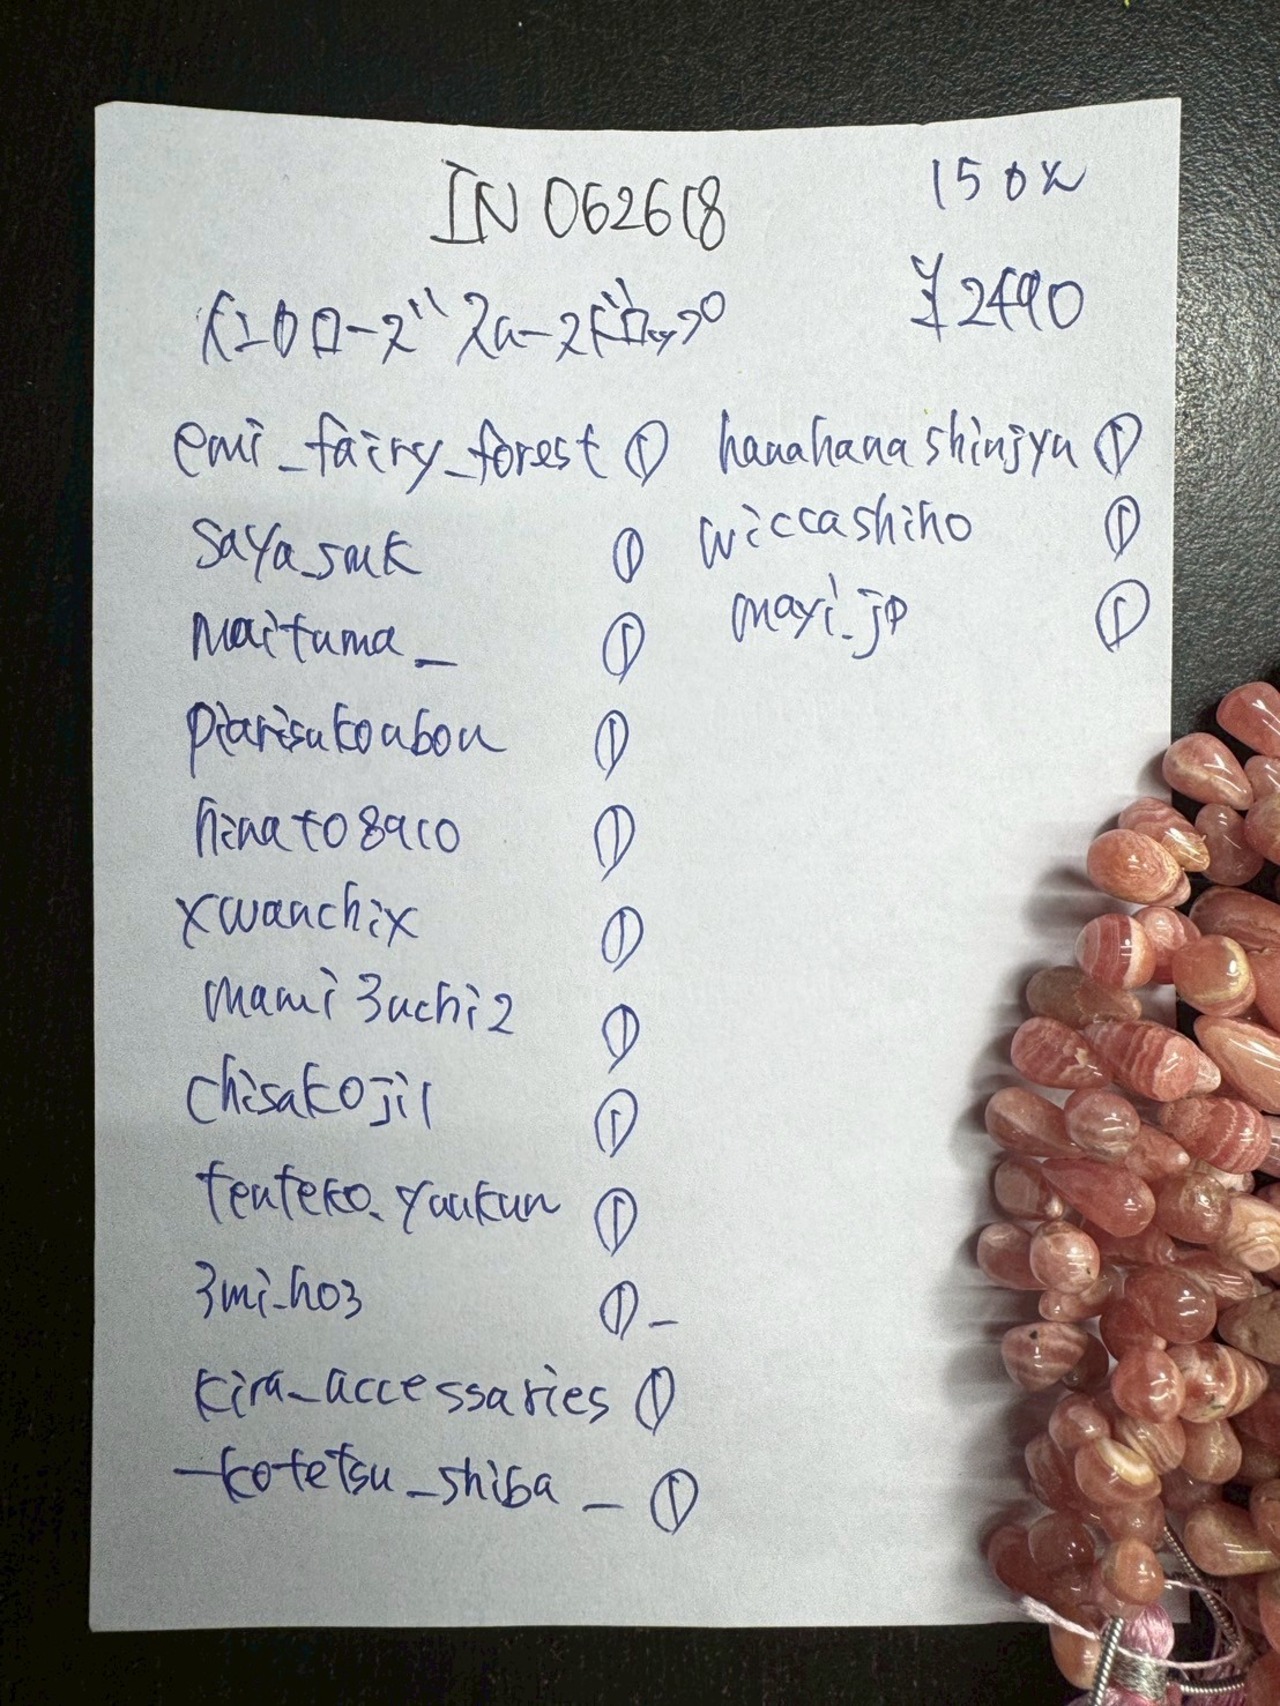 IN 062618
150%
¥2490
emi_fairy_forest ①
saya_smk ①
maituma_ ①
piarisukoubou ①
hinato8910 ①
xwanchix ①
mami3uchi2 ①
chisakoji1 ①
tenteko.yuukun ①
3mi_ho3 ①_
kira_accessaries ①
_kotetsu_shiba_ ①
hanahanashinjyu ①
wiccashiho ①
mayi_jp ①